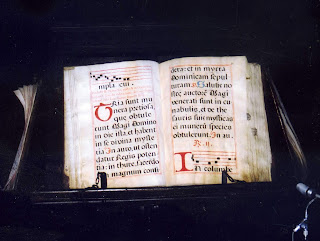 cui.
TRia sunt mu
nera preciosa,
que obtule
runt Magi Domino
in die ista et habent
in se divina myste
ria. In auro, ut osten
datur Regis poten
tia; in thure, Sacerdo
magnum consi
dera: et in myrra
Dominicam sepul
turam. Salutis no
stre auctorē Magi
venerati sunt in cu
nabulis, et de the
sauris suis mysticas
ei munerū species
obtulerunt. In au.
R. ij.
IN columbe